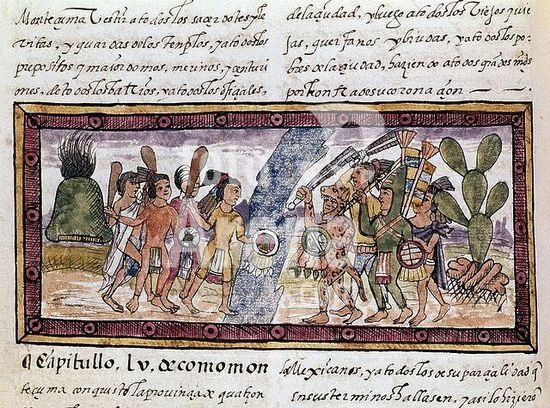 Monteçuma Vestir a todos los sacerdotes y le
vitas, y guardas de los templos, y a todos los
prepositos y maiordomos, merinos, y centuri
ones, de todos los barrios, y a todos los ofiçiales,
de la çiudad, y luego a todos los viejos y vie
jas, guerfanos y biudas, y a todos los po
bres de la çiudad, haziendo a todos
por honrra de su coronaçion
Capitullo. lv. de como mon
teçuma conquisto la provinçia de
los Mexicanos, y a todos los de su parçialidad q
en sus terminos hallasen, y asi lo hiziero